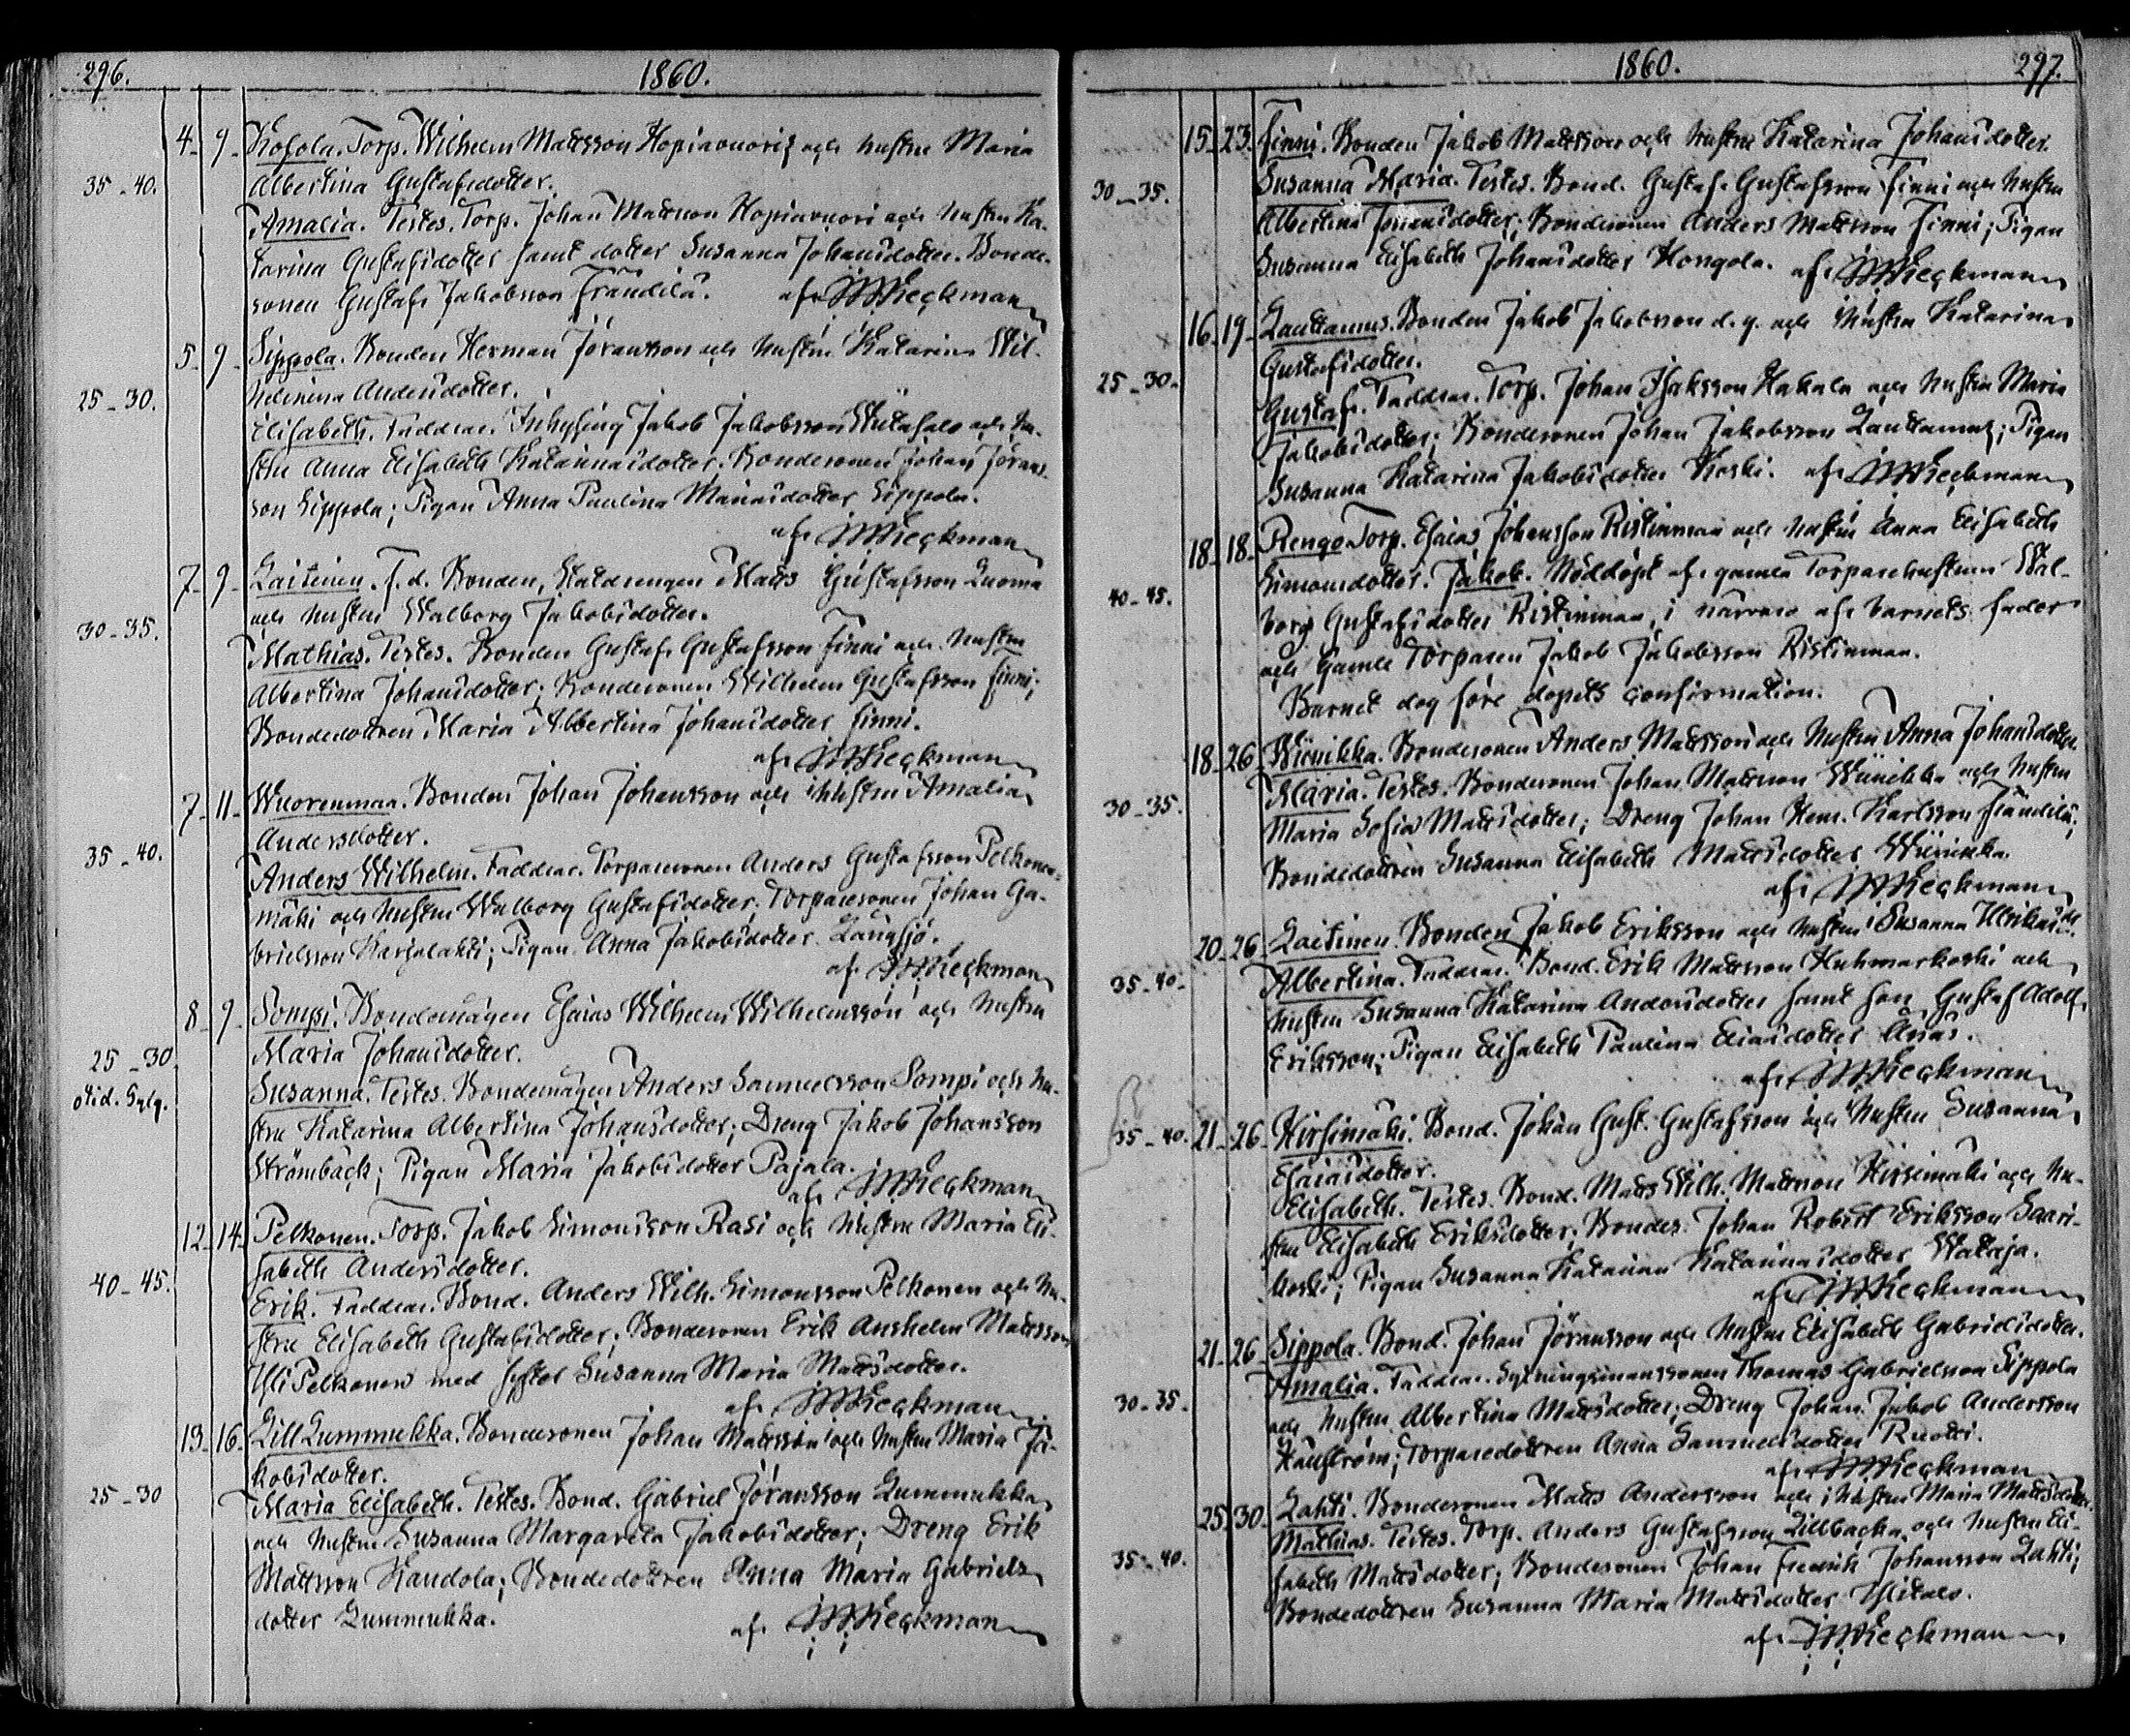 296.
1860.
4. 9. Kosola. Torp. Wilhelm Mattsson Hopiavuori och hustru Maria
35-40. Albertina Gustafsdotter.
Amalia. Testes. Torp. Johan Mattsson Hopiavuori och hustru Ka-
tarina Gustafsdotter samt dotter Susanna Johansdotter. Bonde-
sonen Gustaf Jakobsson Frändilä. af
5. 9. Sippola. Bonden Herman Jöransson och hustru Katarina Wil-
helmina Andersdotter.
25-30.
Elisabeth. Faddrar. Inhysing Jakob Jakobsson och hu-
stru Anna Elisabeth Katarinasdotter. Bondesonen Johan Jörans-
son Sippola; Pigan Anna Paulina Mariasdotter Sippola.
af
7. 9. Laitinen. f.d. Bonden, Statdrengen Matts Gustafsson Luoma
och hustru Walborg Jakobsdotter.
30-35.
Mathias. Testes. Bonden Gustaf Gustafsson Finni och hustru
Albertina Johansdotter; Bondesonen Wilhelm Gustafsson Finni;
Bondedottren Maria Albertina Johansdotter Finni.
af
7. 11. Wuorenmaa. Bonden Johan Johansson och hustru Amalia
Andersdotter.
35-40.
Anders Wilhelm. Faddrar. Torparesonen Anders Gustafsson Pelkonen-
mäki och hustru Walborg Gustafsdotter; Torparesonen Johan Ga-
brielsson Karjalahti; Pigan Anna Jakobsdotter Långsjö.
af
8. 9. Sompi. Bondemågen Esaias Wilhelm Wilhelmsson och hustru
25-30. Maria Johansdotter.
Susanna. Testes. Bondemågen Anders Samuelsson Sompi och hu-
stru Katarina Albertina Johansdotter; Dreng Jakob Johansson
Strömbäck; Pigan Maria Jakobsdotter Pajala.
af
12. 14. Pelkonen. Torp. Jakob Simonsson Rasi och hustru Maria Eli-
sabeth Andersdotter.
40-45.
Erik. Faddrar. Bond. Anders Wilh. Simonsson Pelkonen och hu-
stru Elisabeth Gustafsdotter; Bondesonen Erik Anshelm Mattsson
Yli Pelkonen med syster Susanna Maria Mattsdotter.
af
13. 16. Lill Lummukka. Bondesonen Johan Mattsson och hustru Maria Ja-
kobsdotter.
25-30
Maria Elisabeth. Testes. Bond. Gabriel Jöransson Lummukka
och hustru Susanna Margareta Jakobsdotter; Dreng Erik
Mattsson Kandola; Bondedottren Anna Maria Gabriels-
dotter Lummukka. af
1860.
297.
15. 23. Finni. Bonden Jakob Mattsson och hustru Katarina Johansdotter.
30-35. Susanna Maria. Testes. Bond. Gustaf Gustafsson Finni och hustru
Albertina Johansdotter; Bondesonen Anders Mattsson Finni; Pigan
Susanna Elisabeth Johansdotter Kongola. af
16. 19. Lauttamus. Bonden Jakob Jakobsson d.y. och hustru Katarina
Gustafsdotter.
25-30.
Gustaf. Faddrar. Torp. Johan Isaksson Hakala och hustru Maria
Jakobsdotter; Bondesonen Johan Jakobsson Lauttamus; Pigan
Susanna Katarina Jakobsdotter Koski. af
18. 18. Rengo Torp. Esaias Johansson Ristinmaa och hustru Anna Elisabeth
40-45. Simonsdotter. Jakob. Nöddöpt af gamla Torparehustrun Wal-
borg Gustafsdotter Ristinmaa, i närvaro af barnets fader
och Gamle Torparen Jakob Jakobsson Ristinmaa.
Barnet dog före dopets confirmation.
18. 26. Wiinikka. Bondesonen Anders Mattsson och hustru Anna Johansdotter.
30-35. Maria. Testes. Bondesonen Johan Mattsson Wiinikka och hustru
Maria Sofia Mattsdotter; Dreng Johan Hem. Karlsson Frändilä;
Bondedottren Susanna Elisabeth Mattsdotter Wiinikka.
af
20. 26. Laitinen. Bonden Jakob Eriksson och hustru Susanna Ulrikasdr.
35-40. Albertina. Faddrar. Bond. Erik Mattsson Huhmarkoski och
hustru Susanna Katarina Andersdotter samt son Gustaf Adolf
Eriksson; Pigan Elisabeth Paulina Eliasdotter
af
35-40. 21. 26. Hirsimäki. Bond. Johan Gust. Gustafsson och hustru Susanna
Esaiasdotter.
Elisabeth. Testes. Bond. Matts Wilh. Mattsson Hirsimäki och hu-
stru Elisabeth Eriksdotter; Bondes. Johan Robert Eriksson Saari-
koski; Pigan Susanna Katarina Katarinasdotter Wataja.
af
21. 26. Sippola. Bond. Johan Jöransson och hustru Elisabeth Gabrielsdotter.
30-35. Amalia. Faddrar. Sytningsmanssonen Thomas Gabrielsson Sippola
och hustru Albertina Mattsdotter; Dreng Johan Jakob Andersson
Torparedottren Anna Samuelsdotter Ruotsi.
af
25. 30. Lahti. Bondesonen Matts Andersson och hustru Maria Mattsdotter.
35-40. Mathias. Testes. Torp. Anders Gustafsson Lillbacka och hustru Eli-
sabeth Mattsdotter; Bondesonen Johan Fredrik Johansson Lahti;
Bondedottren Susanna Maria Mattsdotter Ylitalo.
af